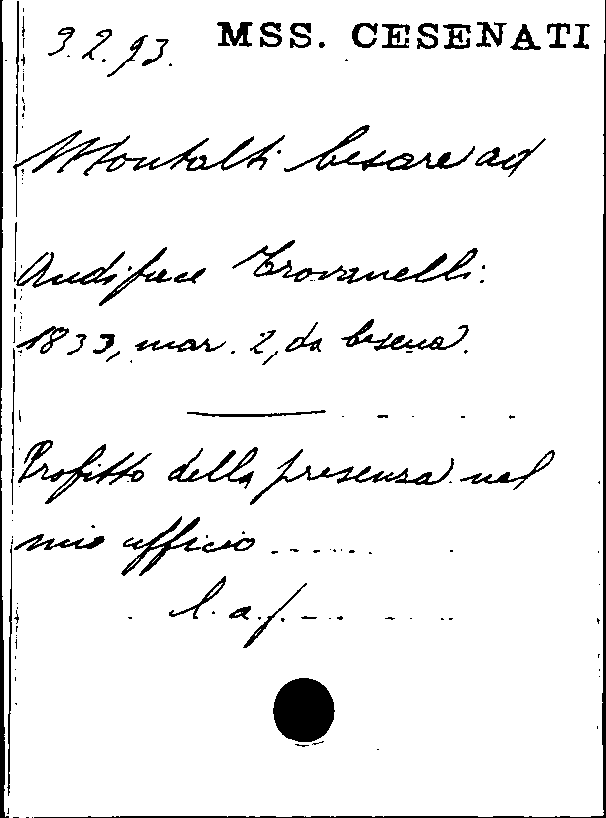 3.2.93. MSS. CESENATI
Montalti Cesare ad
Audiface Trovanelli.
1833, mar. 2, da Cesena.
Profitto della presenza nel
mio ufficio .....
l. a. f.